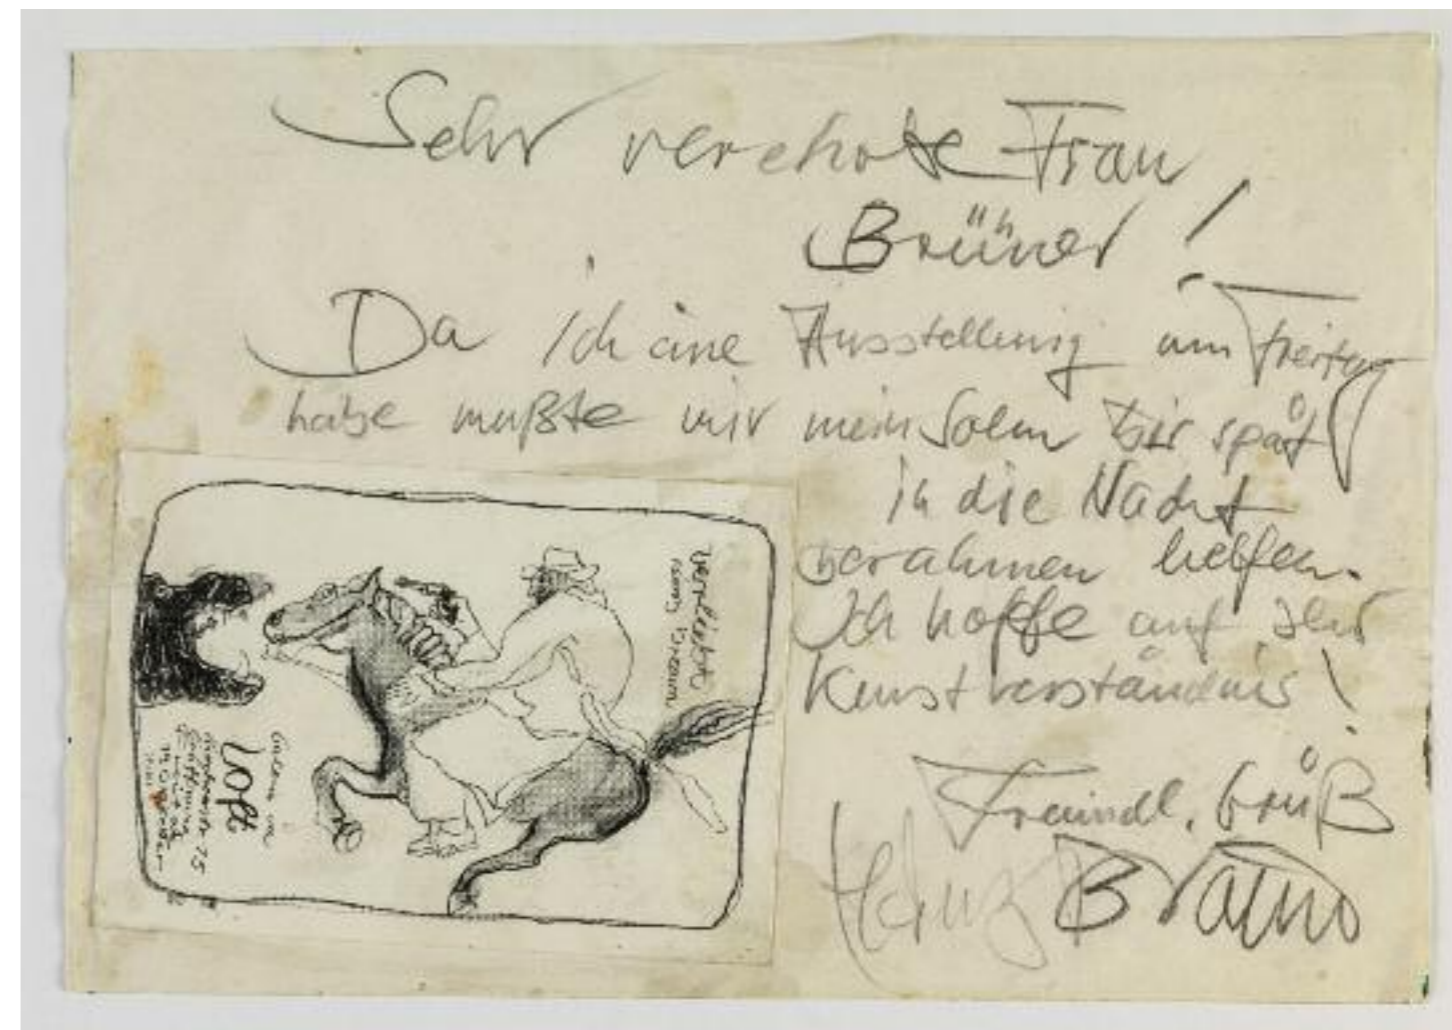 Sehr verehrte Frau
Brüner!
Da ich eine Ausstellung am Freitag
habe mußte mir mein Sohn bis spät
in die Nacht
verahmen helfen.
Ich hoffe auf Ihr
Kunstverständnis!
Freundl. Gruß
Heinz Braun
verliebt
Heinz Braun
Galerie im
Loft